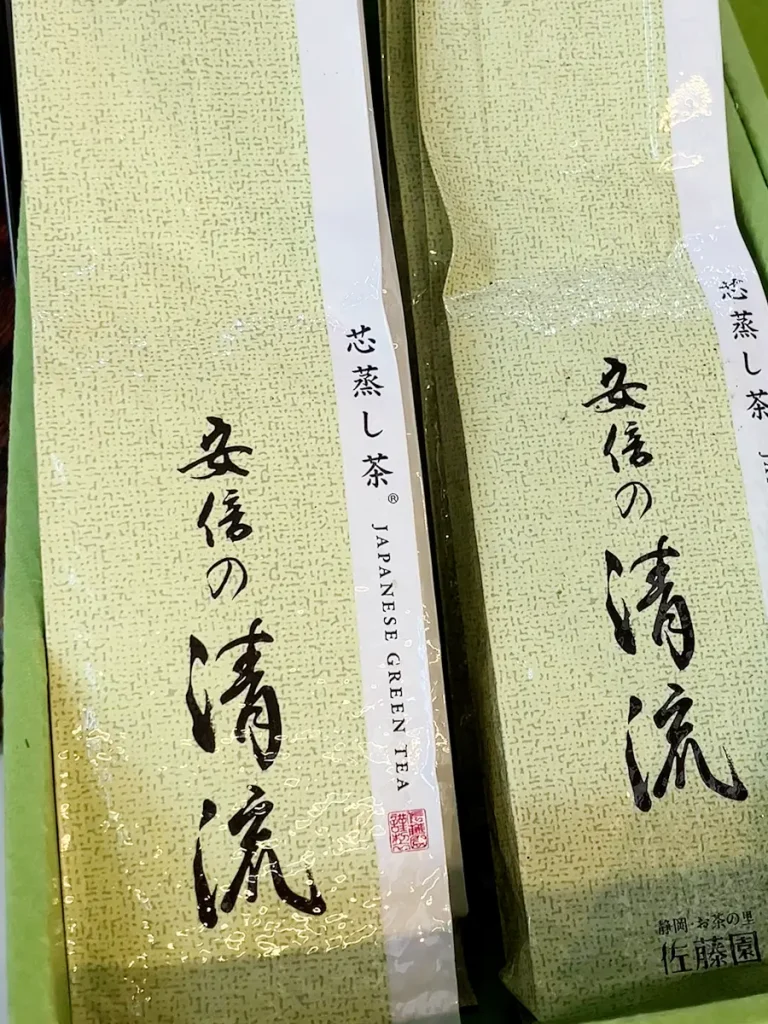 芯蒸し茶®
JAPANESE GREEN TEA
安倍の
清流
芯蒸し茶
安倍の
清流
静岡・お茶の里
佐藤園